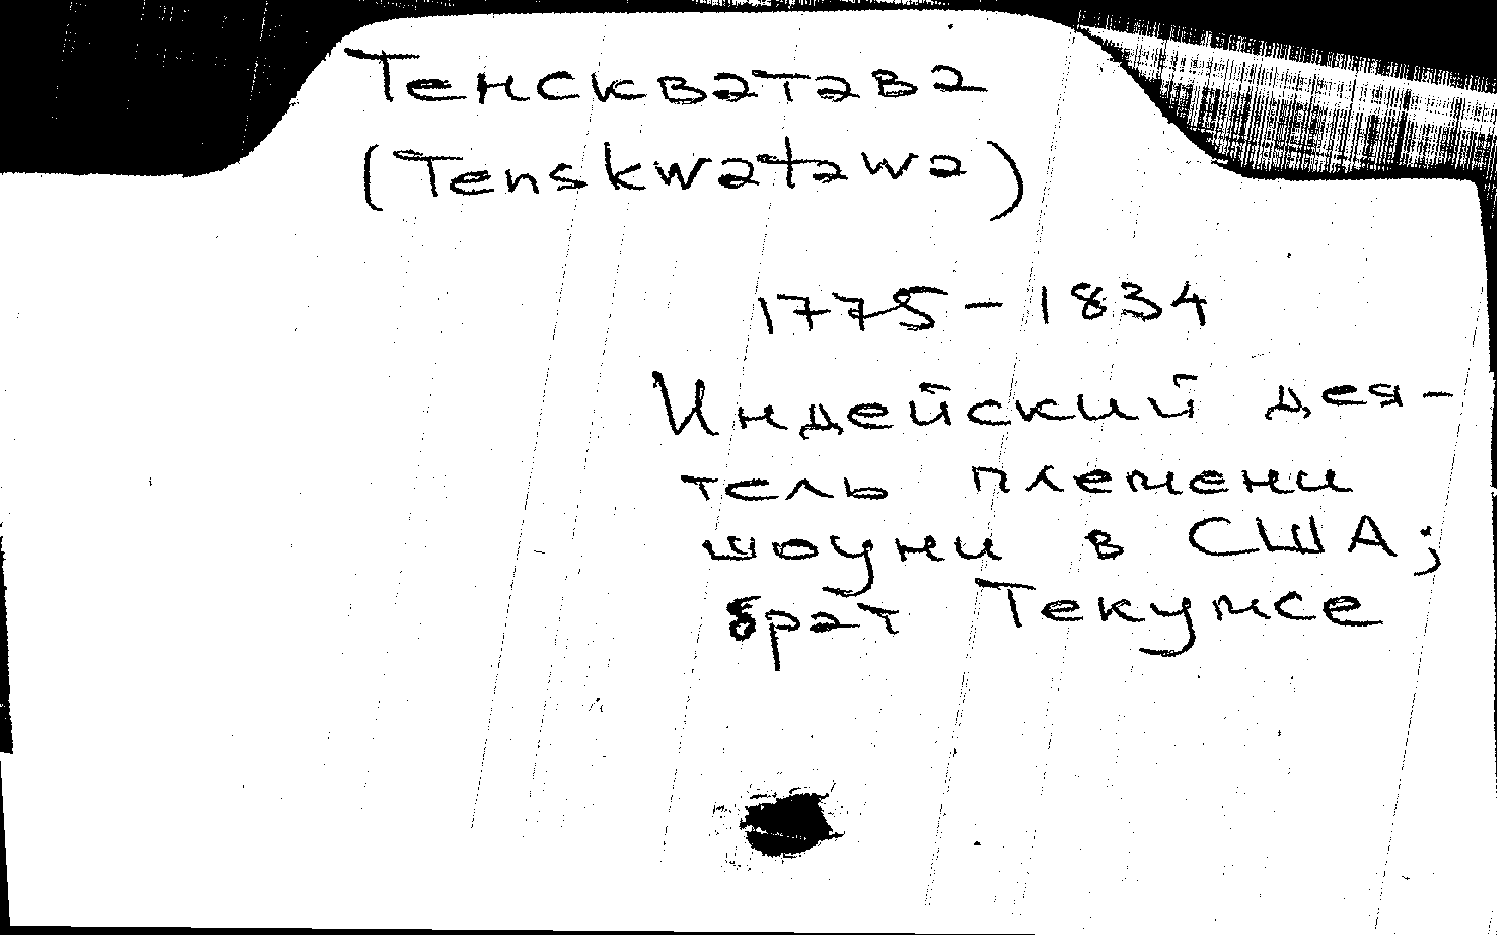 Тенскватава
(Tenskwatawa)
1775-1834
Индейский дея-
тель племени
шоуни в США;
брат Текумсе